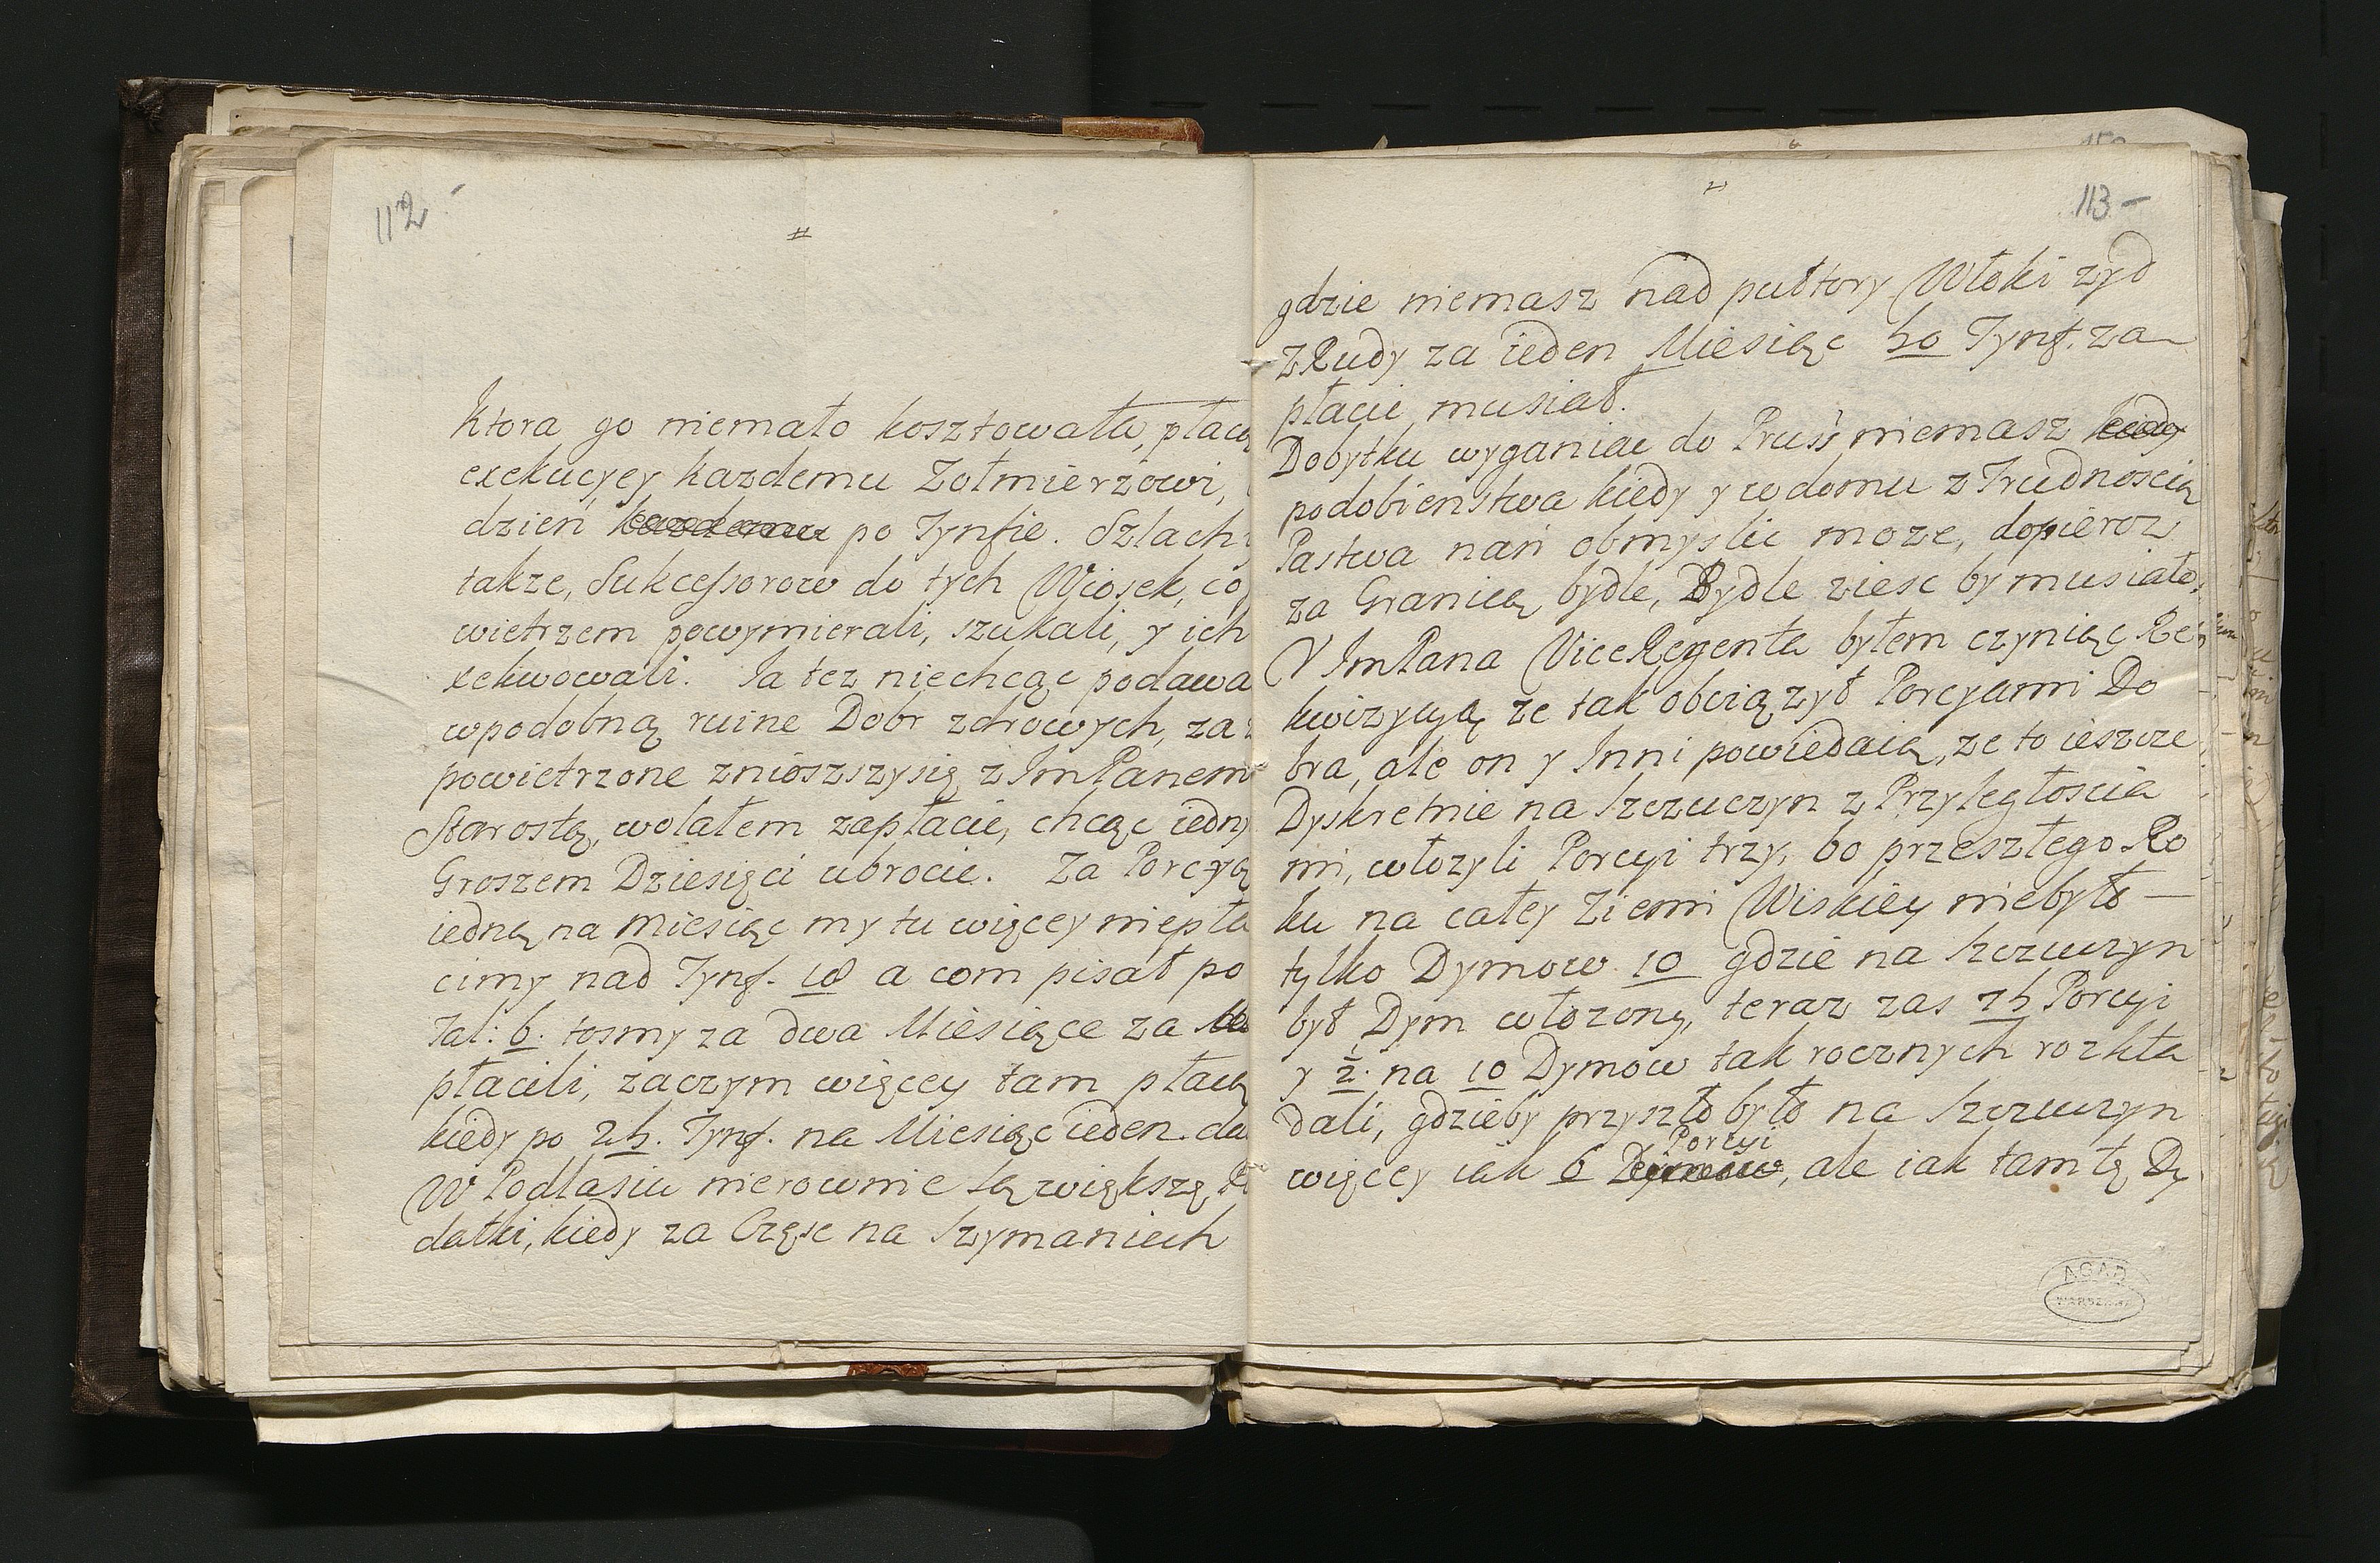 112
ktora go niemało kosztowała, płacą
exekucyey kazdemu Zołnierzowi,
dzień kazdemu po Tynfie. Szlach
takze, Sukcessorow do tych Wiosek, co
wietrzem powymierali, szukali, y ich
xekwowali. Ia tez niechcąc podawa
wpodobną ruine Dobr zdrowych, za
powietrzone zniosszysię z ImPanem
Starostą, wolałem zapłacic, chcąc iedny
Groszem Dziesięci ubrocic. Za Porcyą
iedną na miesiąc my tu więcey niepła
cimy nad Tynf. 18 a com pisał po
Tal: 6. tosmy za dwa Miesiące za
płacili, zaczym więcey tam płacą
kiedy po 25. Tynf. na Miesiąc ieden. da
W Podlasiu nierownie są większe
datki, kiedy za Częsc na Szymaniech
113
gdzie niemasz nad pułtory Włoki zyd
zRudy za ieden Miesiąc 50 Tynf. za
płacic musiał.
Dobytku wyganiac do Pruss niemasz kiedy
podobienstwa kiedy y wdomu z Trudnoscią
Pastwa nań obmyslic moze, dopieroz
za Granicą bydle, Bydle ziesc by musiało.
V ImPana ViceRegenta byłem czyniąc Re
kwizycyą ze tak obciązył Porcyami Do
bra, ale on y Inni powiedaią, ze to ieszcze
Dyskretnie na Szczuczyn z Przyległoscia
mi, włozyli Porcyi trzy, bo przeszłego Ro
ku na całey Ziemi Wiskiey niebyło
tylko Dymow 10 gdzie na Szczuczyn
był Dym włozony, teraz zas 75 Porcyi
y 2. na 10 Dymow tak rocznych rozkła
dali, gdzieby przyszło było na Szczuczyn
Porcyi
więcey iak 6 Dymow, ale iak tamtę Dy
AGAD
WARSZAWA